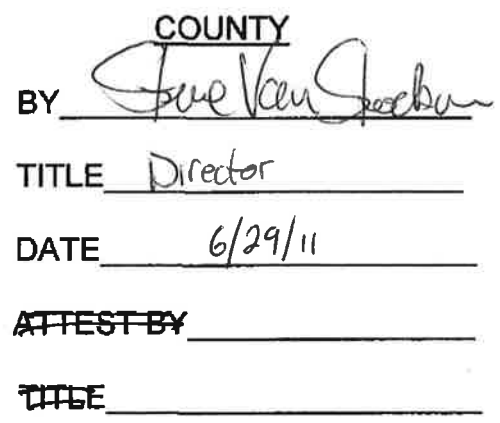 COUNTY
BY Steve Van Stockum
TITLE Director
DATE 6/29/11
ATTEST BY
TITLE